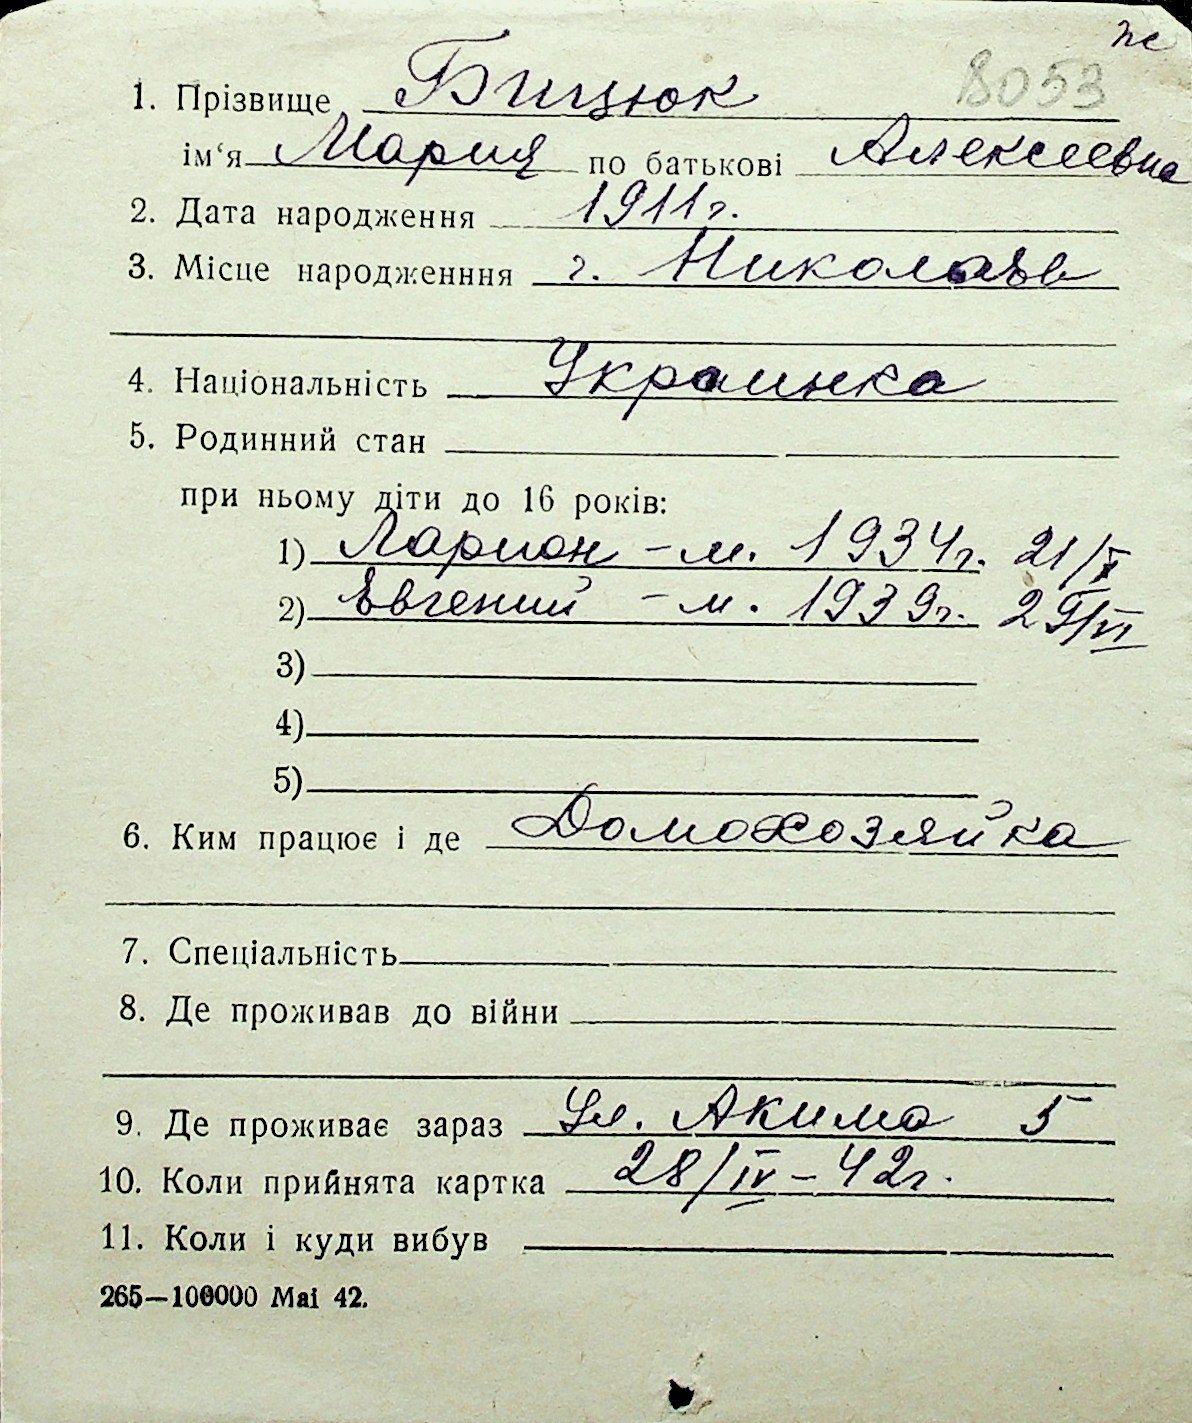 8053
1. Прізвище Бицюк
ім‘я Мария по батькові Алексеевна
2. Дата народження 1911 г.
3. Місце народженння г. Николаев
4. Національність Украинка
5. Родинний стан
при ньому діти до 16 років:
1) Ларион – м. 1934 г. 21/X
2) Евгений – м. 1939 г. 29/VI
3)
4)
5)
6. Ким працює і де Домохозяйка
7. Спеціальність
8. Де проживав до війни
9. Де проживає зараз Ул. Акима 5
10. Коли прийнята картка 28/IV – 42 г.
11. Коли і куди вибув
265—100000 Mai 42.